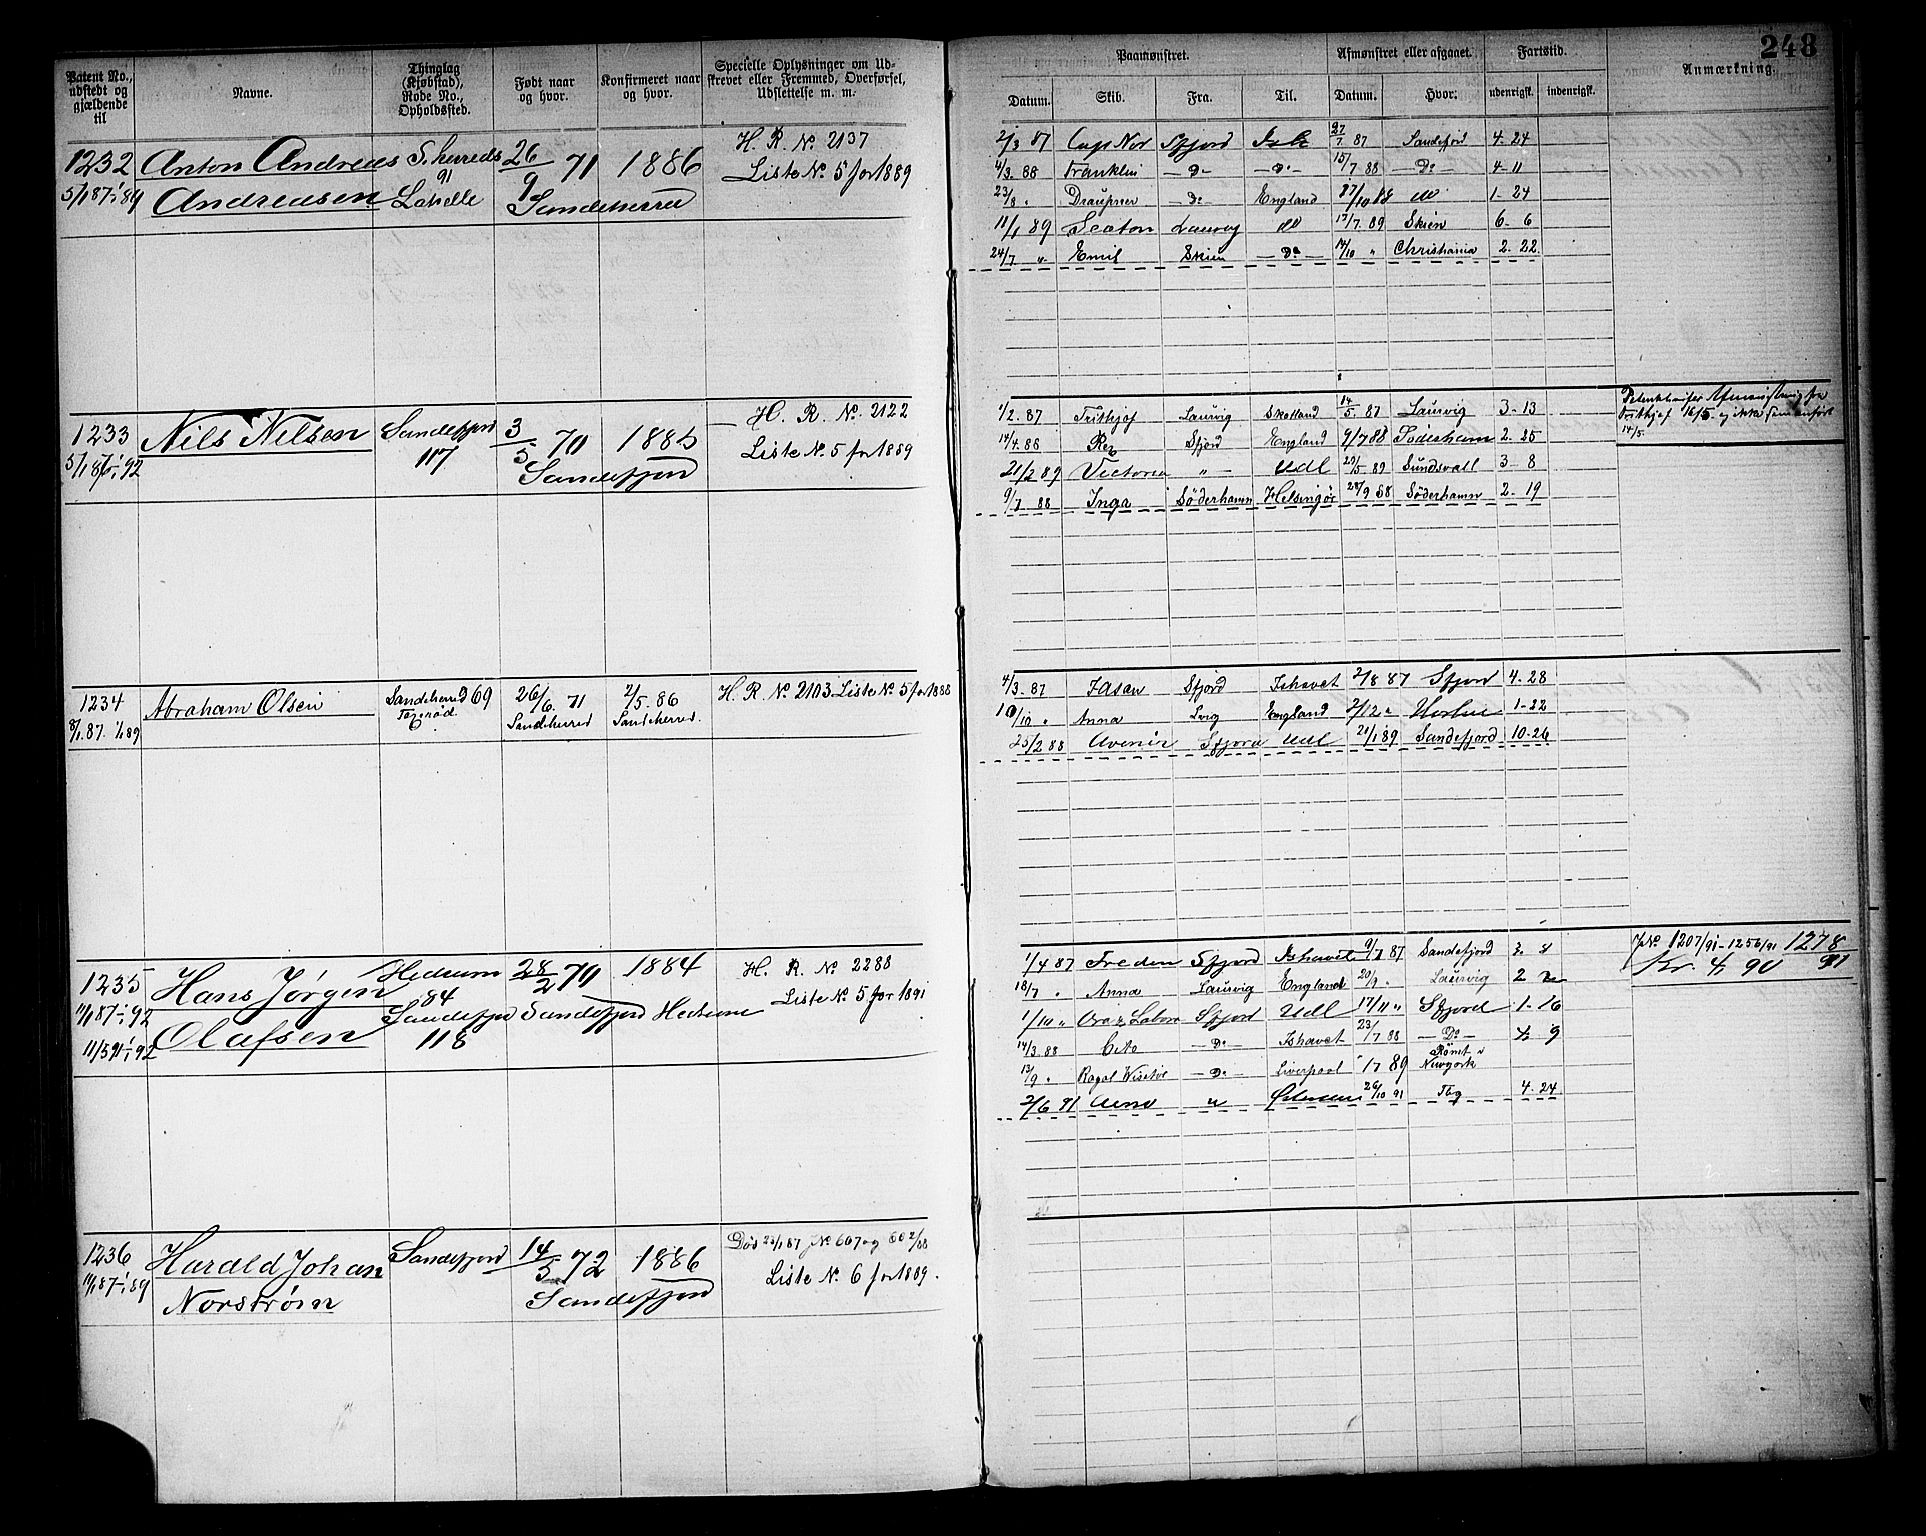 248
Patent No., udstedt og gjældende til
Navne.
Thinglag (Kjøbstad), Rode No., Opholdssted.
Født naar og hvor.
Konfirmeret naar og hvor.
Specielle Oplysninger om Udskrevet eller Fremmed, Overførsel, Udslettelse m. m.
Paamønstret.
Afmønstret eller afgaaet.
Fartstid.
Anmærkning.
Datum. Skib. Fra. Til. Datum. Hvor. udenrigsk. indenrigsk.
1232 Anton Andreas S.herreds 26/9 71 1886 H. R. No 2137
5/1 87-1/1 89 Andreasen 91 Sandeherred Liste No. 5 for 1889
2/3 87 Cap Nor Sfjord 27/7. 87 Sandefjord 4-24
4/3. 88 Franklin — Do — — Do — 15/7 88 — Do — 4-11
23/8 " Draupner — Do England 27/10 88 do 1-24
11/1 89 Seaton Laurvig do 17/7. 89 Skien 6-6
24/7. " Emil Skien — Do — 14/10 " Christiania 2-22
1233 Nils Nilsen Sandefjord 3/5 70 1885 H. R. No. 2122
5/1 87-1/1 92 117 Sandefjord Liste No. 5 for 1889
1/2. 87 Frithjof Laurvig Skotland 14/5 87 Laurvig 3-13
14/4. 88 Rex Sfjord England 9/7 88 Söderhamn 2-25
21/2 89 Victoria " — Udl 29/5 89 Sundsvall 3-8
9/7 88 Inga Söderhamn Helsingör 28/9 88 Söderhamn 2-19
Frithjof 16/5 og ikke som anført
14/5.
1234 Abraham Olsen Sandeherred 69 26/6. 71 2/5. 86 H. R. No. 2103 Liste No. 5 for 1888
8/1 87. 1/1 89 Sandherred Sandeherred.
4/3. 87 Jasan Sfjord Ishavet 2/8 87 Sfjord 4-28
10/10 " Anna Lvig England 2/12 " 1-22
25/2 88 Avenir Sfjord Udl 21/1 89 Sandefjord 10-26
1235 Hans Jørgen Hedrum 28/2 70 1884 H. R. No 2288
11/1 87-1/1 92 84 Sandefjord Sandefjord Hedrum Liste No. 5 for 1891
11/5 91-1/1 92 Olafsen 118
1/4 87 Freden Sfjord Ishavet 9/7 87 Sandefjord 3 8
18/7 " Anna Laurvig England 20/9 " Laurvig 2 2
1/10 " Ora & Labora Sfjord Udl 17/11 " Sfjord 1-16
14/3. 88 — Do — Ishavet 23/7 88 — Do — 4 9
13/9 " — Do — Liverpool 17 89 Rømt i Newyork
2/6 91 " 26/10 91 Tbg 4-24
JNo 1207/91-1256/91 1278/91
Kr. 4 90
1236 Harald Johan Sandefjord 14/5 72 1886 Død 23/1 87 JNo 607 og 602/88
11/1 87-1/1 89 Norstrøm Sandefjord Liste No. 6 for 1889.